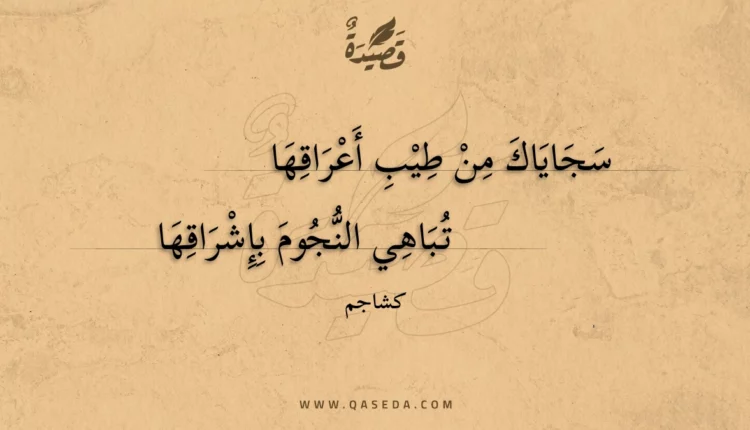 قَصِيْدَةٌ
سَجَايَاكَ مِنْ طِيْبِ أَعْرَاقِهَا
تُبَاهِي النُّجُومَ بِإِشْرَاقِهَا
كشاجم
WWW.QASEDA.COM